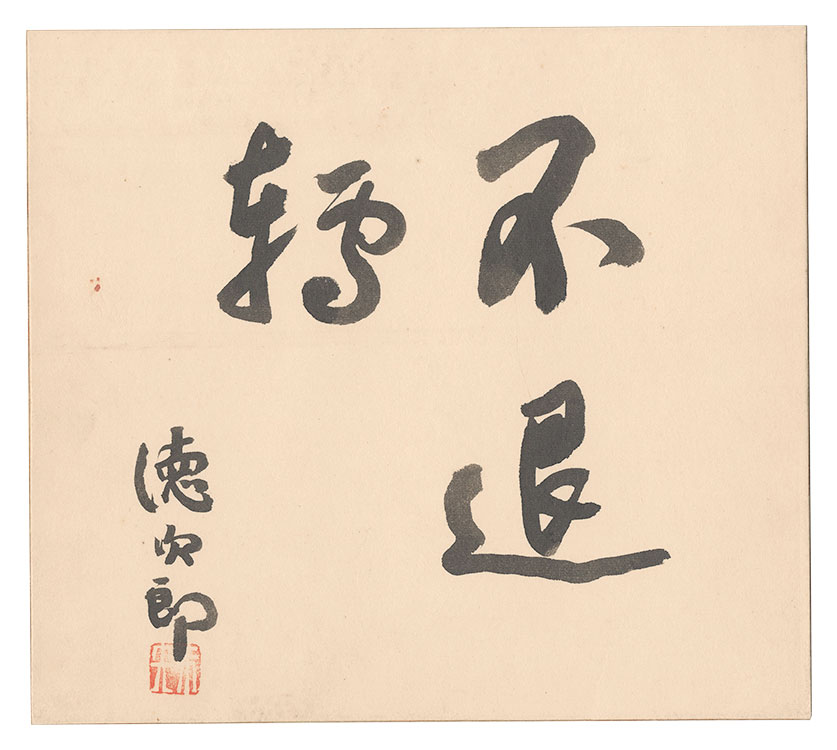 不退
轉
徳次郎